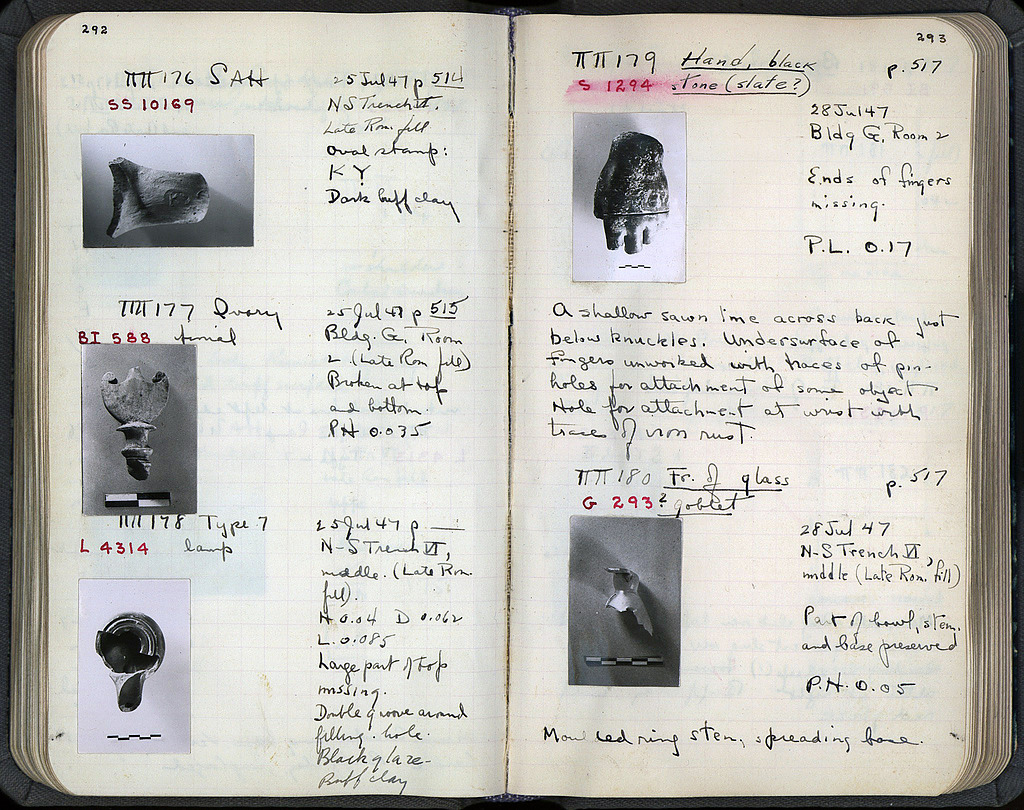 292
ΠΠ 176 SAH
SS 10169
25 Jul 47 p 514
NS Trench VI.
Late Rom. fill
Oval stamp:
KY
Dark buff clay
ΠΠ 177 Ivory
BI 588 finial
25 Jul 47 p 515
Bldg. G. Room
2 (Late Rom fill)
Broken at top
and bottom
PH 0.035
ΠΠ 178 Type 7
L 4314 lamp
25 Jul 47 p. —
N-S Trench VI,
middle. (Late Rom.
fill).
H 0.04 D 0.062
L. 0.085
Large part of top
missing.
Double groove around
filling-hole.
Black glaze-
Buff clay
293
ΠΠ 179 Hand, black
S 1294 stone (slate?)
p. 517
28 Jul 47
Bldg G, Room 2
Ends of fingers
missing.
P.L. 0.17
A shallow sawn line across back just
below knuckles. Undersurface of
fingers unworked with traces of pin-
holes for attachment of some object
Hole for attachment at wrist with
traces of iron rust.
ΠΠ 180 Fr. of glass
G 293? goblet
p. 517
28 Jul 47
N-S Trench VI,
middle (Late Rom. fill)
Part of bowl, stem.
and base preserved
P.H. 0.05
Moulded ring stem, spreading base.